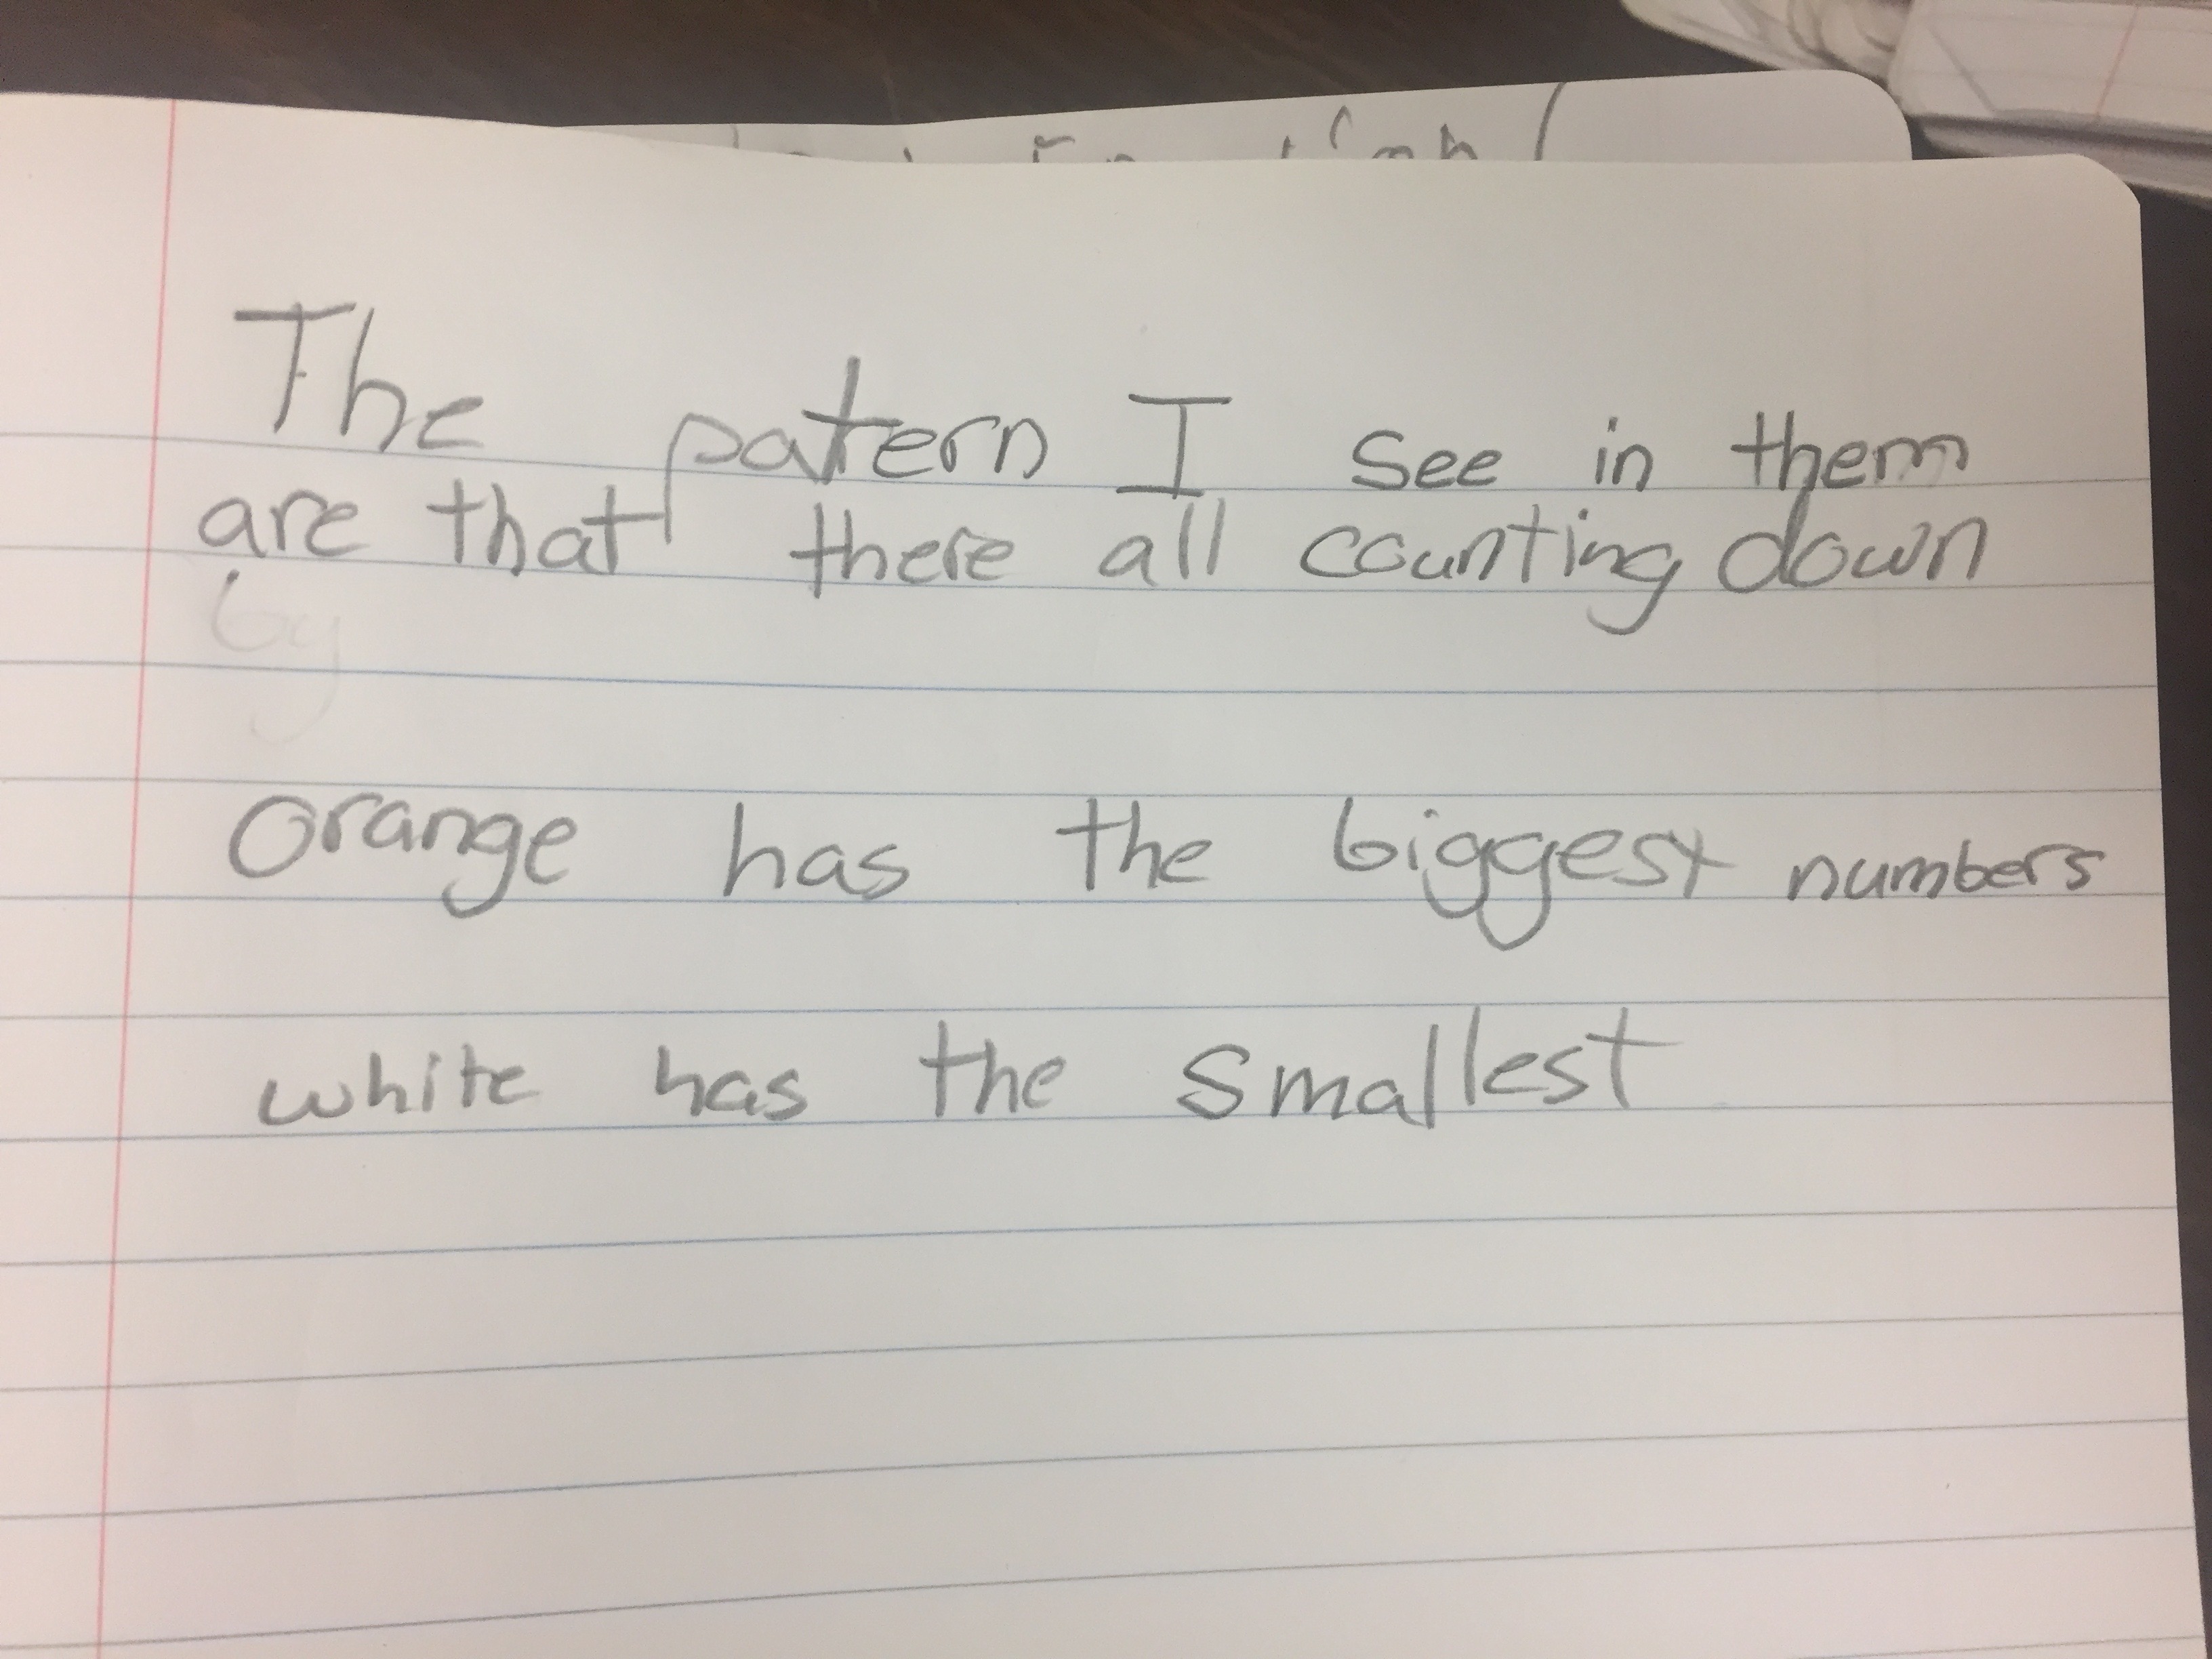 The patern I see in them
are that there all counting down
by
Orange has the biggest numbers
white has the smallest